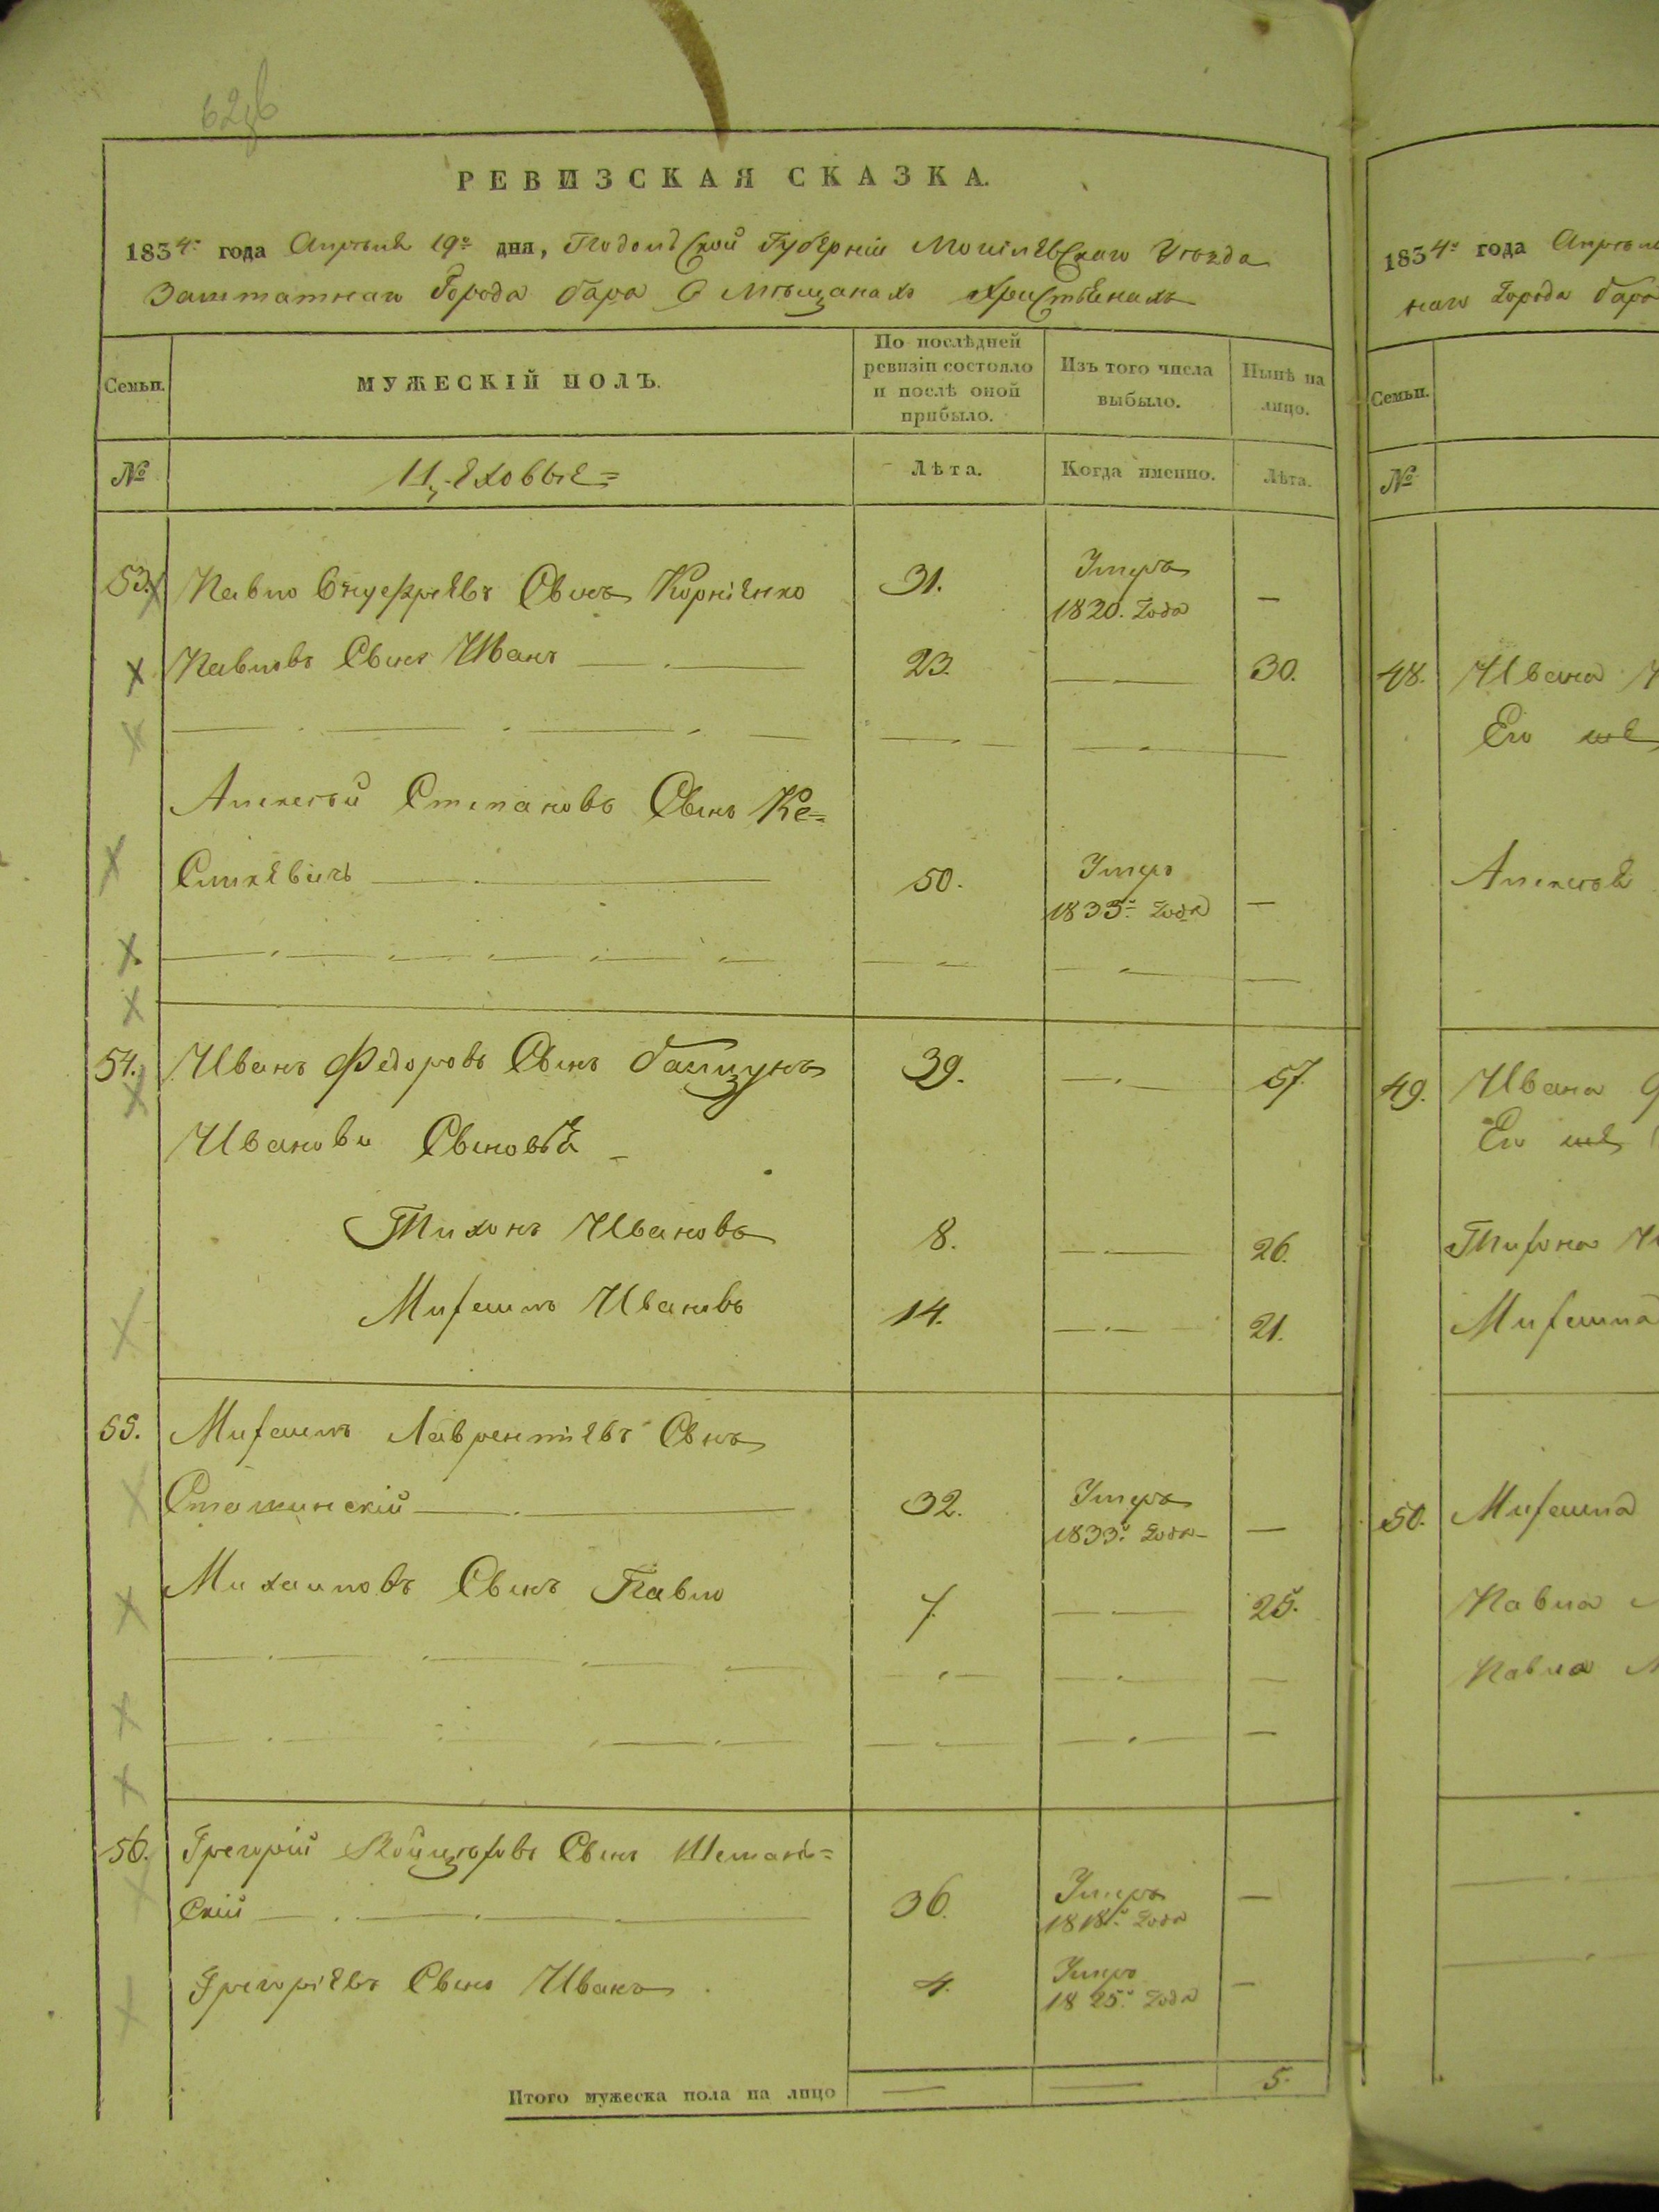 РЕВИЗСКАЯ СКАЗКА.
1834. года Апреля 19го дня, Подольской Губерніи Могилевскаго Уезда
Заштатнаго Города бара О мещанахъ Христіенахъ
Семьи.
МУЖЕСКІЙ ПОЛЪ.
По послѣдней
ревизіи состояло
и послѣ оной
прибыло.
Изъ того числа
выбыло.
Нынѣ на
лицо.
№
Цеховые=
Лѣта.
Когда именно.
Лѣта.
53. Павло Снуефріевъ Сынъ Корніенко 31. Умеръ
1820. Года —
Павловъ Сынъ Иванъ 23. 30.
Алексѣй Степановъ Сынъ Ке=
Слинкевичъ 50. Умеръ
1833го Года —
54. Иванъ Федоровъ Сынъ 39. 57.
Ивановы Сыновѣя
Тихонъ Ивановъ 8. 26.
Михаилъ Ивановъ 14. 21.
55. Михаилъ Лаврентіевъ Сынъ
32. Умеръ
1833го Года —
Михаиловъ Сынъ Павло 7. 25.
56. Грегорій Сынъ Шемань=
Скій 36. Умеръ
1818го Года —
Грегоріевъ Сынъ Иванъ 4. Умеръ
1825го Года —
Итого мужеска пола на лицо 5.
1834го года
наго Города бара
Семьи.
№
48. Ивана
Его
Алексея
49. Ивана
Его
Тихона
Михаила
50. Михаила
Павла
Павла